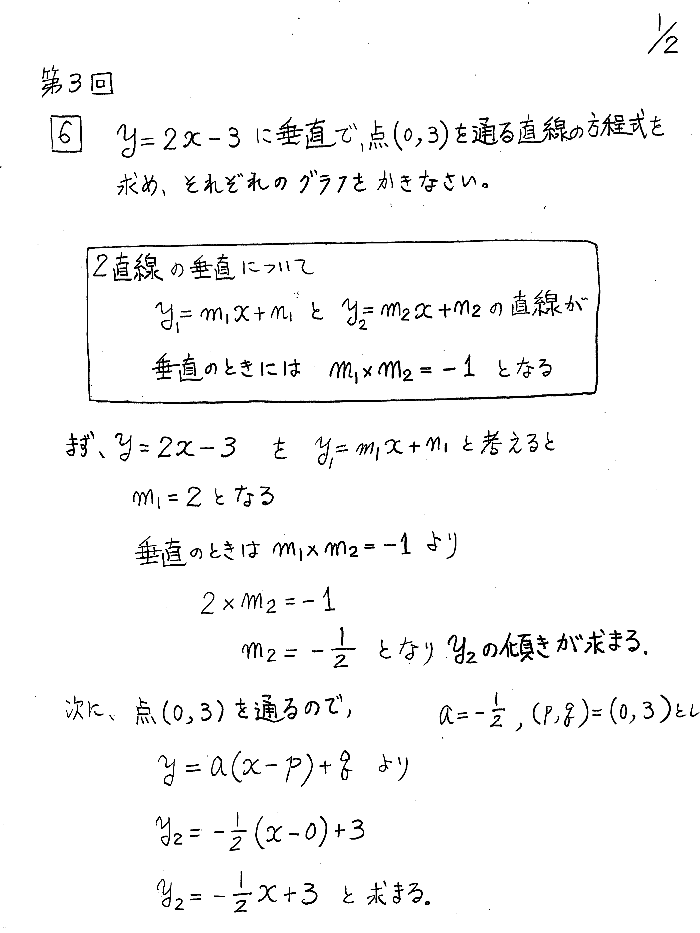 1/2
第3回
6 y=2x-3 に垂直で、点(0,3)を通る直線の方程式を
求め、それぞれのグラフをかきなさい。
2直線の垂直について
y₁=m₁x+n₁ と y₂=m₂x+n₂ の直線が
垂直のときには m₁×m₂=-1 となる
まず、y=2x-3 を y₁=m₁x+n₁ と考えると
m₁=2 となる
垂直のときは m₁×m₂=-1 より
2×m₂=-1
m₂=-1/2 となり y₂の傾きが求まる.
次に、点(0,3)を通るので, a=-1/2, (p,q)=(0,3)とし
y=a(x-p)+q より
y₂=-1/2(x-0)+3
y₂=-1/2x+3 と求まる。